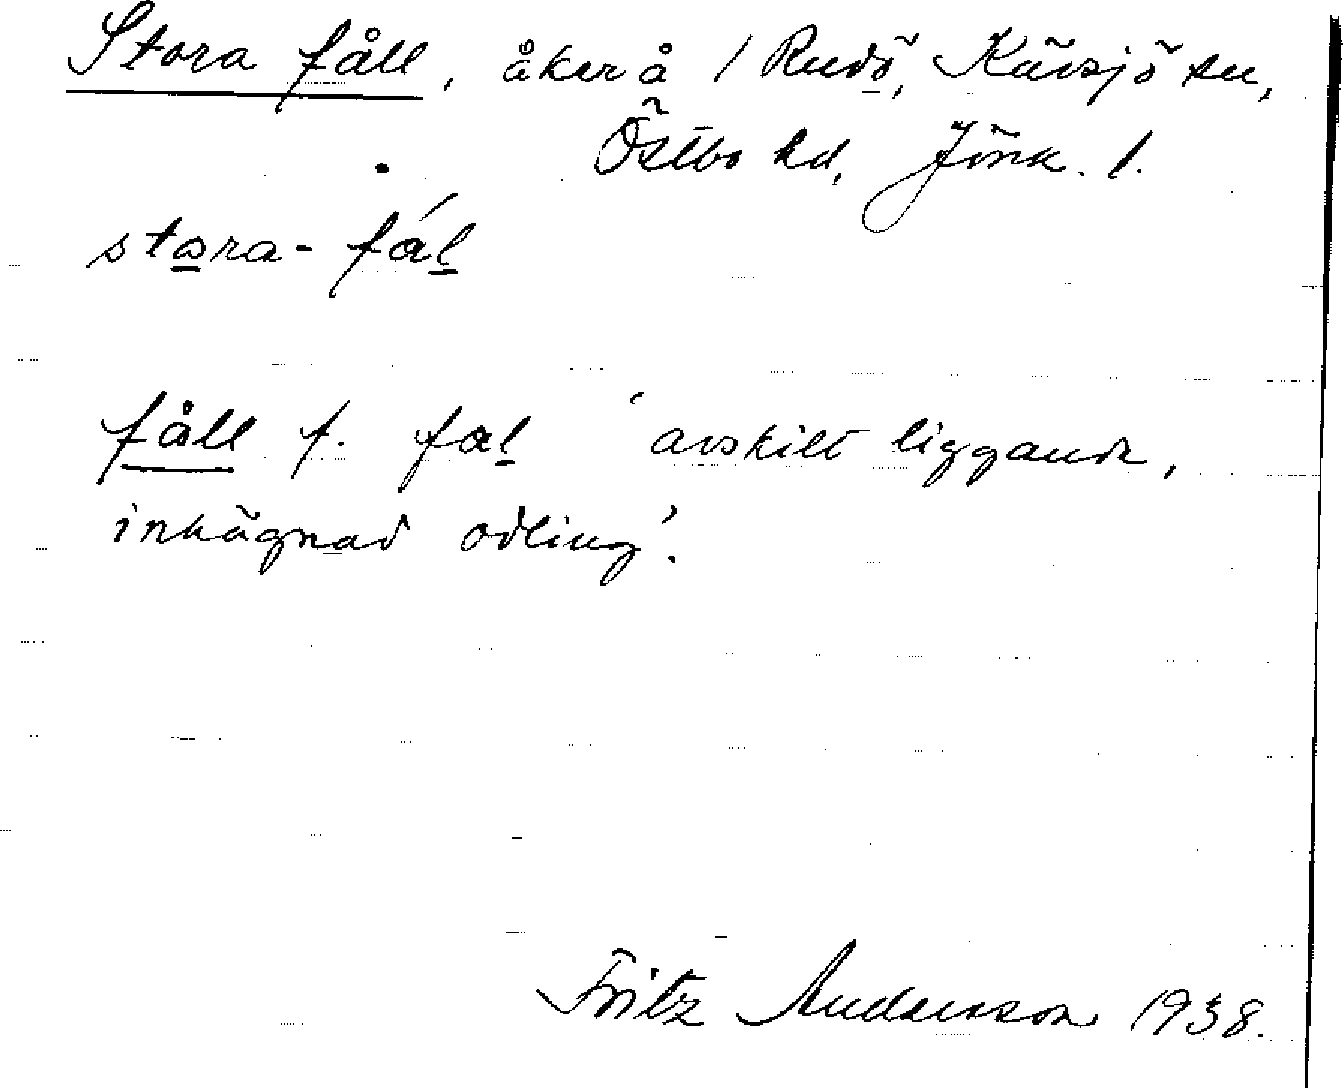 Stora fåll, åker å 1 Rudö, Kävsjö sn,
Östbo hd, Jönk. l.
stora- fál
fåll f. fal 'avskilt liggande,
inhägnad odling'.
Fritz Andersson 1938.